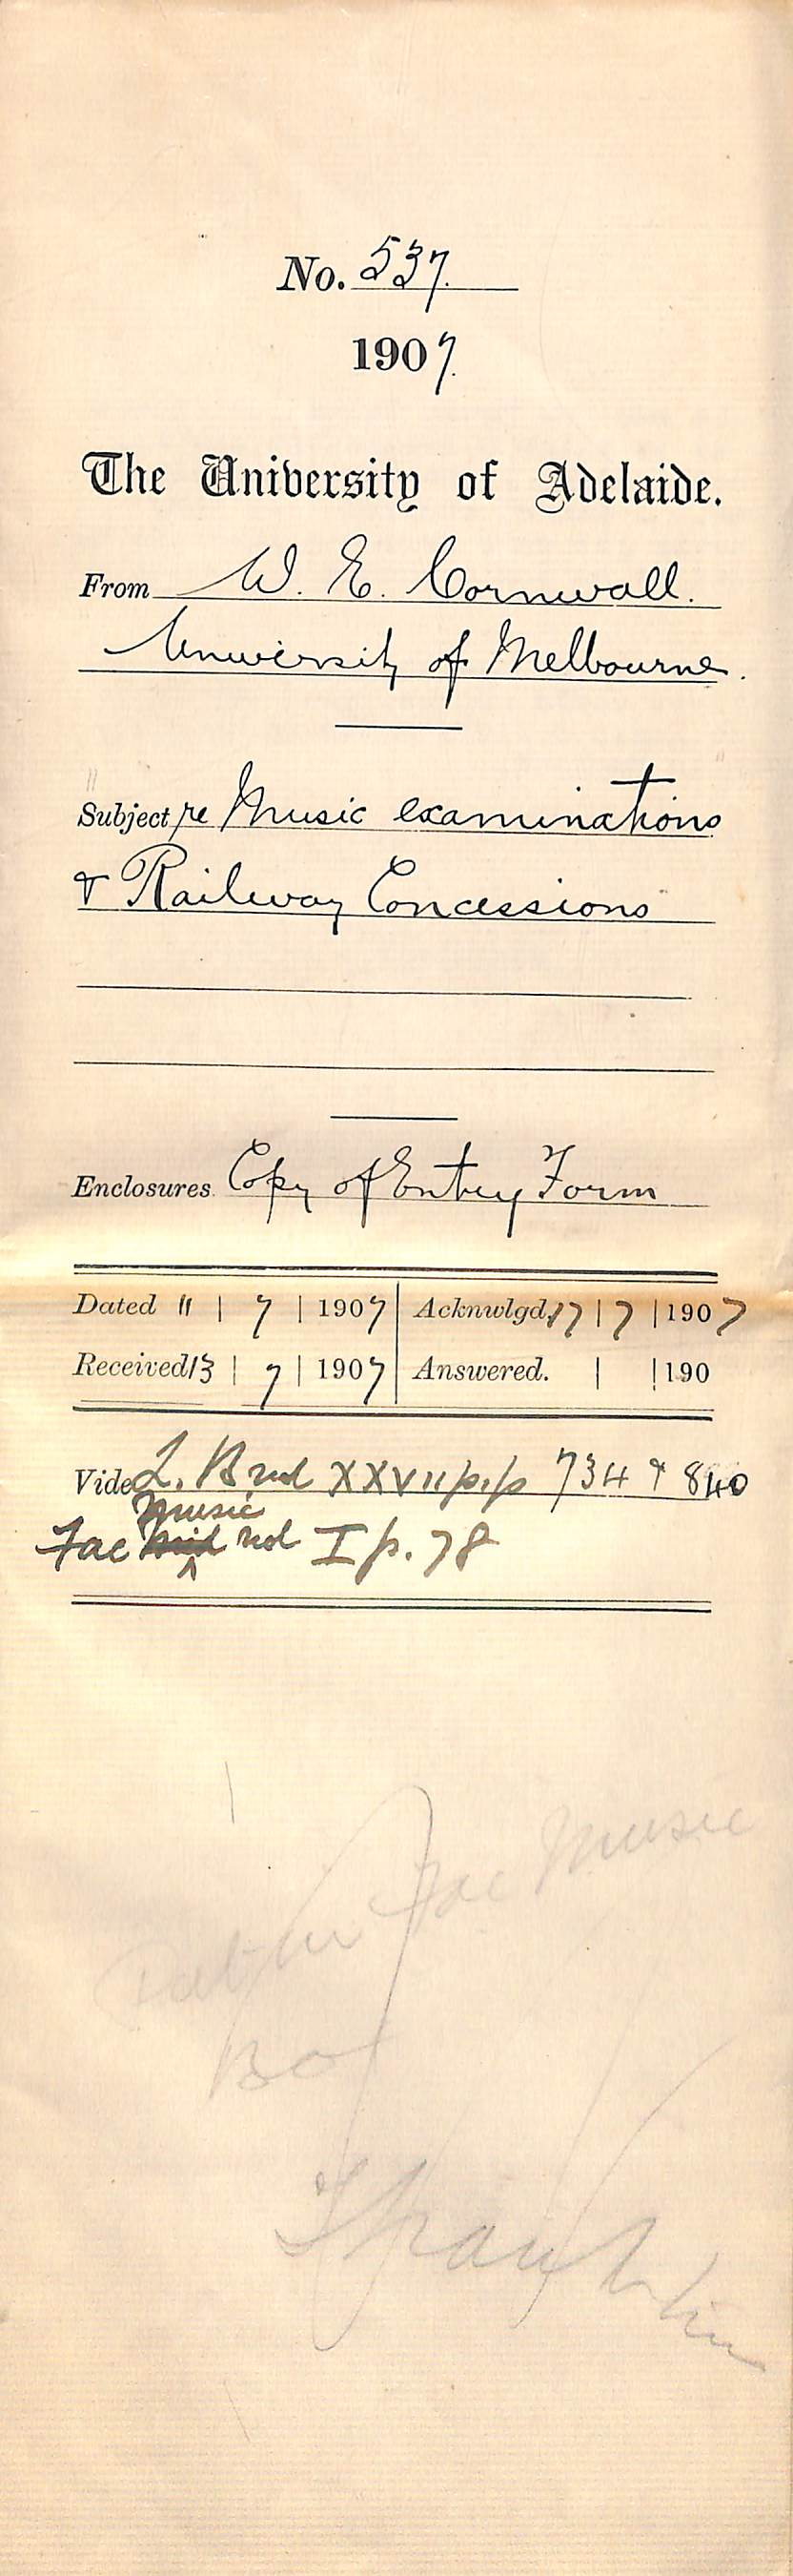 No. 537.
1907.
The University of Adelaide.
From W. E. Cornwall.
University of Melbourne.
Subject re Music examinations
& Railway Concessions
Enclosures. Copy of Entry Form
Dated 11 | 7 | 1907 | Acknwlgd. 17 | 7 | 1907
Received 13 | 7 | 1907 | Answered. | | 190
Vide L. B vol XXVII p.p 734 & 840
Music
Fac vol I p. 78
Fac Music